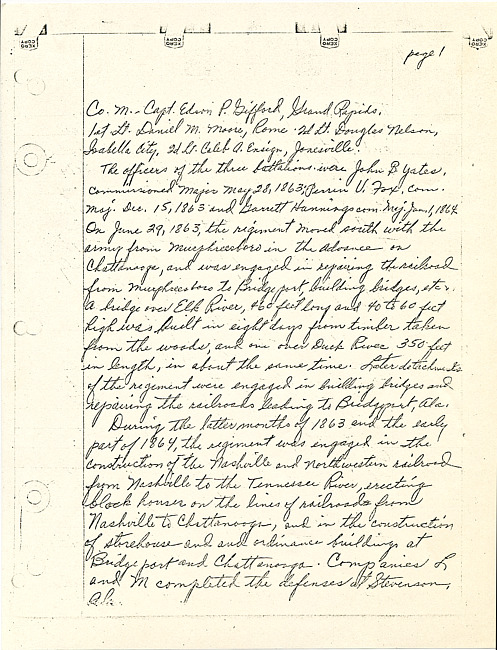 XEROX COPY
XEROX COPY
XEROX COPY
XEROX COPY
page 1
Co. M. - Capt. Edson P. Gifford, Grand Rapids,
1st Lt. Daniel M. Moore, Rome - 2d Lt. Douglas Nelson,
Isabella City, 2d Lt. Caleb A. Ensign, Jonesville.
The officers of the three battalions were John B Yates,
commissioned Major May 28, 1863, Perrin V. Fox, com.
Maj. Dec. 15, 1863 and Garrett Hannings com. Maj. Jan 1, 1864
On June 29, 1863, the regiment moved south with the
army from Murphreesboro in the advance on
Chattanooga, and was engaged in repairing the railroad
from Murphreesboro to Bridgeport, building bridges, etc.
A bridge over Elk River, 460 feet long and 40 to 60 feet
high was built in eight days from timber taken
from the woods, and one over Duck River 350 feet
in length, in about the same time. Later detachments
of the regiment were engaged in building bridges and
repairing the railroads leading to Bridgeport, Ala.
During the latter months of 1863 and the early
part of 1864, the regiment was engaged in the
construction of the Nashville and Northwestern railroad
from Nashville to the Tennessee River, erecting
block houses on the lines of railroads from
Nashville to Chattanooga, and in the construction
of storehouse and and ordinance buildings at
Bridgeport and Chattanooga. Companies L
and M completed the defenses at Stevenson,
Ala.